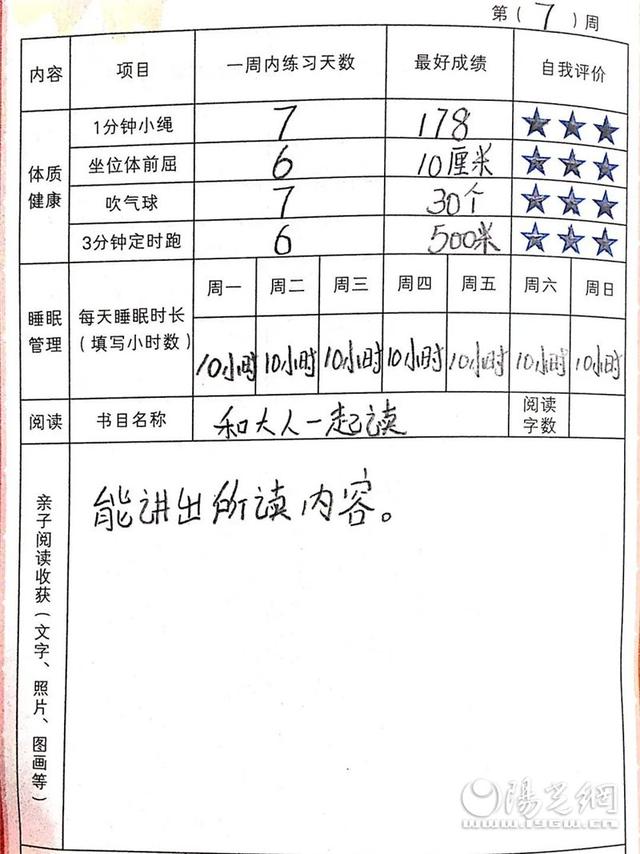 第（7）周
内容 项目 一周内练习天数 最好成绩 自我评价
体质健康
1分钟小绳 7 178 ★★★
坐位体前屈 6 10厘米 ★★★
吹气球 7 30个 ★★★
3分钟定时跑 6 500米 ★★★
睡眠管理
每天睡眠时长（填写小时数）
周一 周二 周三 周四 周五 周六 周日
10小时 10小时 10小时 10小时 10小时 10小时 10小时
阅读 书目名称 和大人一起读 阅读字数
亲子阅读收获（文字、照片、图画等）
能讲出所读内容。
陽光網
www.iygw.cn